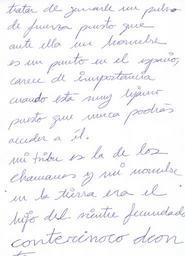 tratar de ganarle un pulso
de fuerza puesto que
ante ella un hombre
es un punto en el espacio,
carece de importancia
cuando esta muy lejano
puesto que nunca podrás
acceder a él.
mi tribu es la de los
chamanes y mi nombre
en la tierra era el
hijo del vientre fecundado